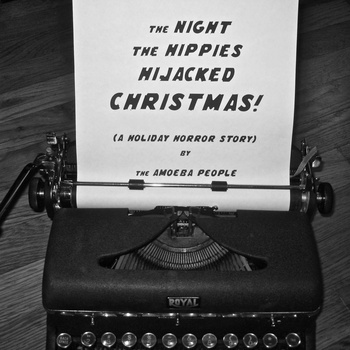 THE NIGHT
THE HIPPIES
HIJACKED
CHRISTMAS!
(A HOLIDAY HORROR STORY)
BY
THE AMOEBA PEOPLE
ROYAL